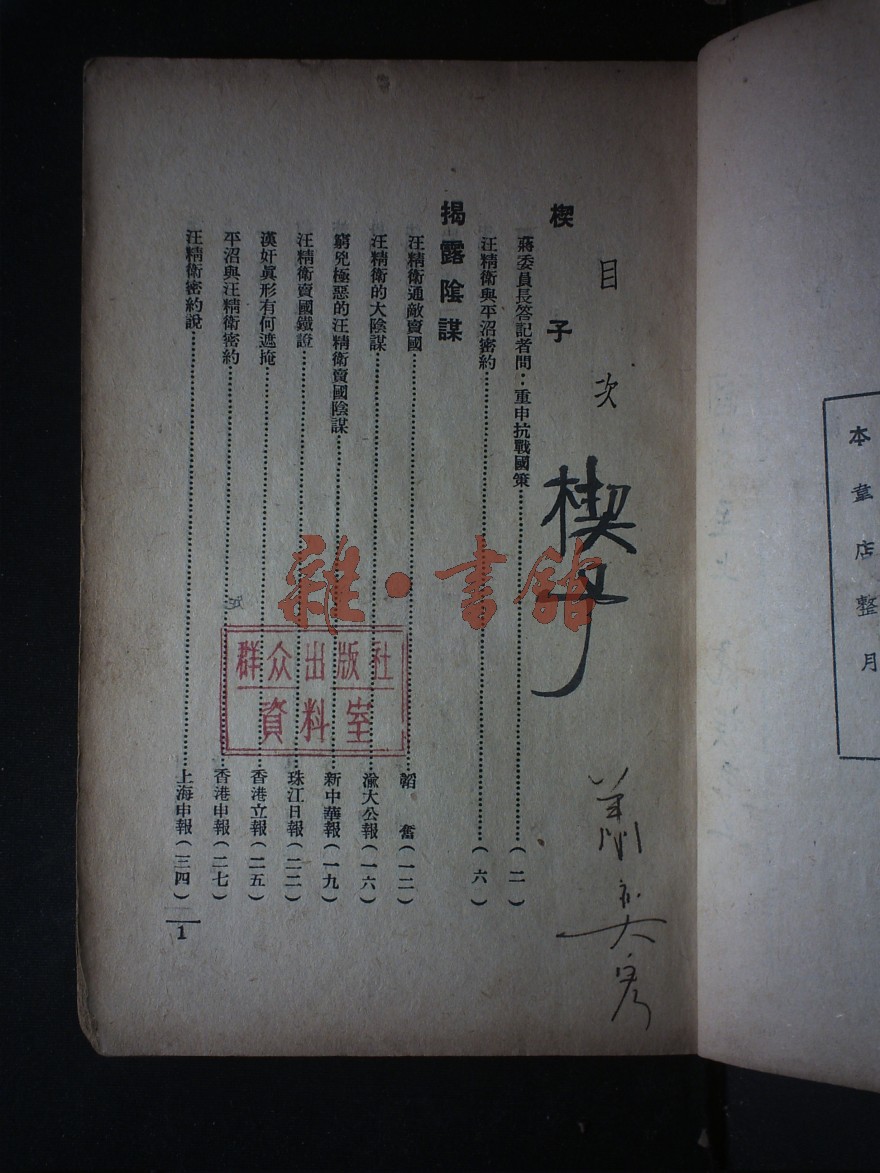 本韋店整月
目次
楔子
蔣委員長答記者問：重申抗戰國策……(二)
汪精衛與平沼密約……(六)
揭露陰謀
汪精衛通敵賣國……韜奮(一二)
汪精衛的大陰謀……渝大公報(一六)
窮兇極惡的汪精衛賣國陰謀……新中華報(一九)
汪精衛賣國鐵證……珠江日報(二二)
漢奸眞形有何遮掩……香港立報(二五)
平沼與汪精衛密約……香港申報(二七)
汪精衛密約說……上海申報(三四)
1
楔子
雜·書館
群众出版社
資料室